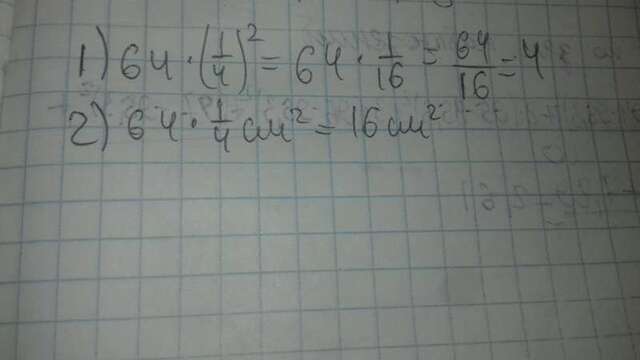 1) 64 · (1/4)² = 64 · 1/16 = 64/16 = 4
2) 64 · 1/4 см² = 16 см²